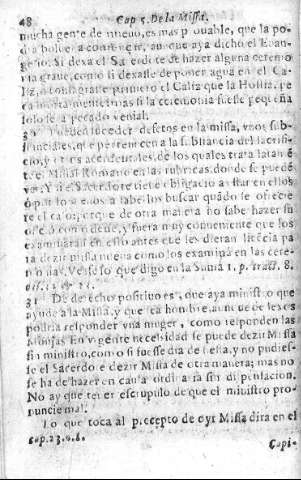 48 Cap 5. De la Missa.
mucha gente de nueuo, es mas prouable, que la po-
dra boluer a començar, aunque aya dicho el Euan-
gelio. Si dexa el Sacerdote de hazer alguna ceremo
nia graue, como si dexasse de poner agua en el Ca-
liz, o consagrasse primero el Caliz que la Hostia, pe
ca mortalmente mas si la ceremonia fuesse pequeña
solo seria pecado venial.
Pueden suceder defetos en la missa, vnos subs-
tanciales, que pertenecen a la substancia del sacrifi-
cio, y otros accidentales, de los quales trata latamẽ
te el Missal Romano en las rubricas donde se puedẽ
ver. Y si el Sacerdote tiene obligacio
o por lo menos a saberlos buscar quãdo se ofrecie
re el caso, porque de otra manera no sabe hazer su
oficio como deue, y fuera muy conueniente que los
examinaran en esto antes que les dieran licẽcia pa
ra dezir missa nueua como los examinã en las cere-
monias. Vease lo que digo en la Suma 1. p. tract. 8.
31 De derecho positiuo es, que aya ministro que
ayude a la Missa, y que sea hombre, aunque de lexos
podria responder vna muger, como responden las
Monjas. En vrgente necessidad se puede dezir Missa
sin ministro, como si fuesse dia de fiesta, y no pudies-
se el Sacerdote dezir Missa de otra manera; mas no
se ha de hazer en causa ordinaria sin dispensacion.
No ay que tener escrupulo de que el ministro pro-
nuncie mal.
Lo que toca al precepto de oyr Missa dira en el
cap. 23. §. 6.
Copi-